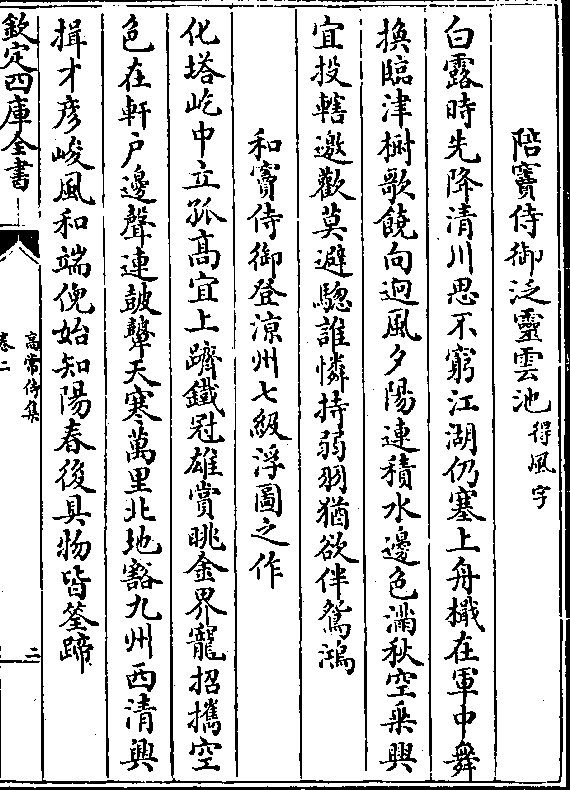 陪竇侍御泛靈雲池 得風字
白露時先降清川思不窮江湖仍塞上舟檝在軍中舞
換臨津樹歌饒向迥風夕陽連積水邊色滿秋空乗興
宜投轄邀歡莫避驄誰憐持弱羽猶欲伴鴛鴻
和竇侍御登涼州七級浮圖之作
化塔屹中立孤髙宜上躋鐵冠雄賞眺金界寵招攜空
色在軒戸邊聲連鼓鼙天寒萬里北地豁九州西清興
揖才彦峻風和端倪始知陽春後具物皆筌蹄
欽定四庫全書
髙常侍集
卷二
二